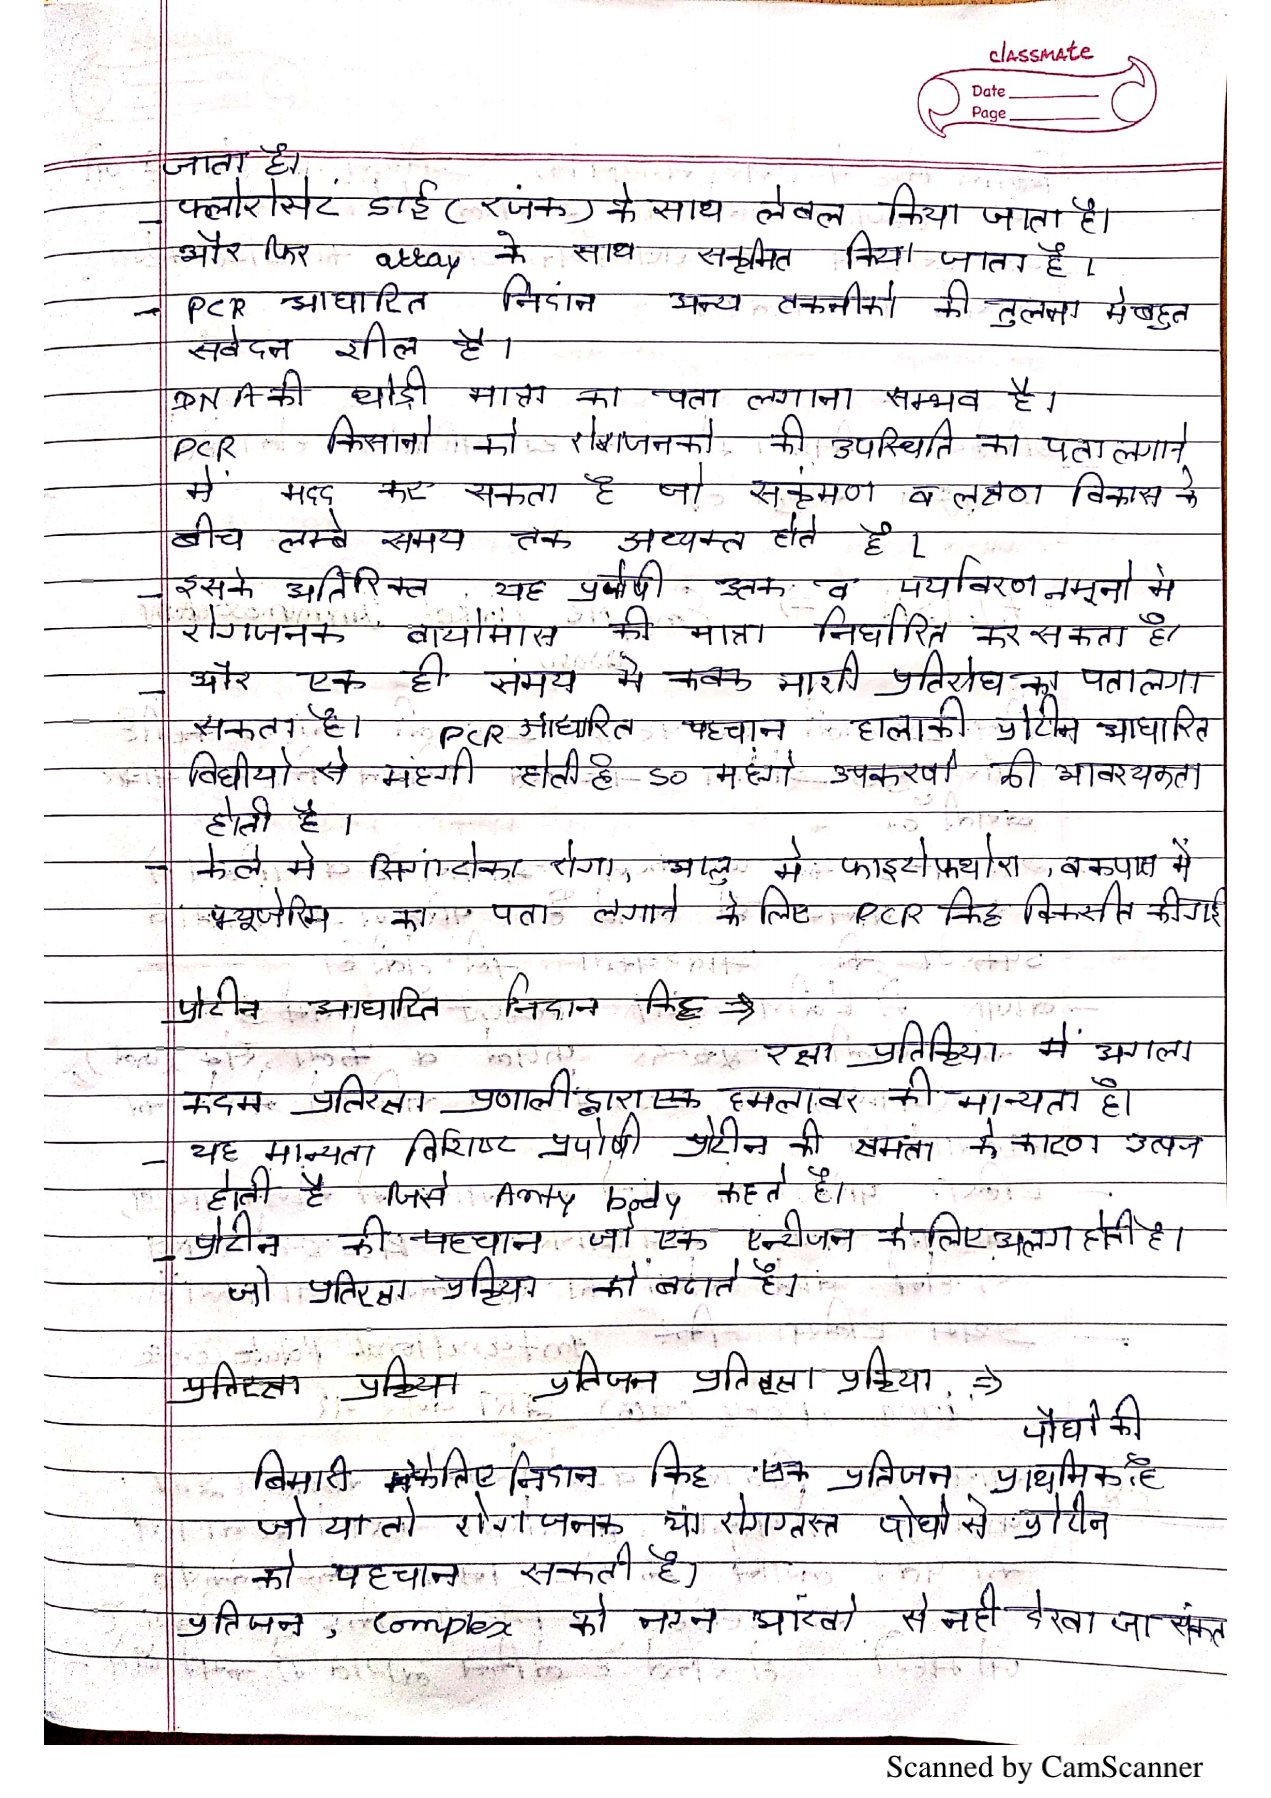 classmate
Date
Page
जाता है।
- फ्लोरोसेटं डाई (रंजक) के साथ लेबल किया जाता है।
और फिर array के साथ सकृमित किया जाता है।
- PCR आधारित निदान अन्य तकनीको की तुलना मे बहुत
सवेदन शील है।
DNA की थोडी मात्रा का पता लगाना सम्भव है।
PCR किसानो को रोगजनको की उपस्थिति का पता लगाने
में मदद कर सकता है जो सकृंमण व लक्षण विकास के
बीच लम्बे समय तक अव्यक्त होते है।
- इसके अतिरिक्त यह प्रपोषी उतक व पर्यावरण नमूनो मे
रोगजनक बायोमास की मात्रा निर्धारित कर सकता है।
- और एक ही समय मे कवक नाशी प्रतिरोध का पता लगा
सकता है। PCR आधारित पहचान हालाकी प्रोटीन आधारित
विधीयो से मंहगी होती है so महंगे उपकरणो की आवश्यकता
होती है।
- केले मे सिगांटोका रोगा, आलु मे फाइटोफ्थोरा, व कपास में
फ्यूजेरिम का पता लगाने के लिए PCR किट विकसीत की गई
प्रोटीन आधारित निदान किट ⇒
रक्षा प्रतिक्रिया में अगला
कदम प्रतिरक्षा प्रणाली द्वारा एक हमलावर की मान्यता है।
- यह मान्यता विशिष्ट प्रपोषी प्रोटीन की क्षमता के कारण उत्पन्न
होती है जिसे Anty body कहते है।
- प्रोटीन की पहचान जो एक एन्टीजन के लिए अलग होती है।
जो प्रतिरक्षा प्रक्रिया को बढाते है।
प्रतिरक्षा प्रक्रिया प्रतिजन प्रतिरक्षा प्रक्रिया ⇒
पौधो की
बिमारी के लिए निदान किट एक प्रतिजन प्राथमिक है
जो या तो रोगजनक या रोगग्रस्त पोधो से प्रोटीन
को पहचान सकती है।
प्रतिजन, complex को नग्न आंखो से नही देखा जा सकत
Scanned by CamScanner